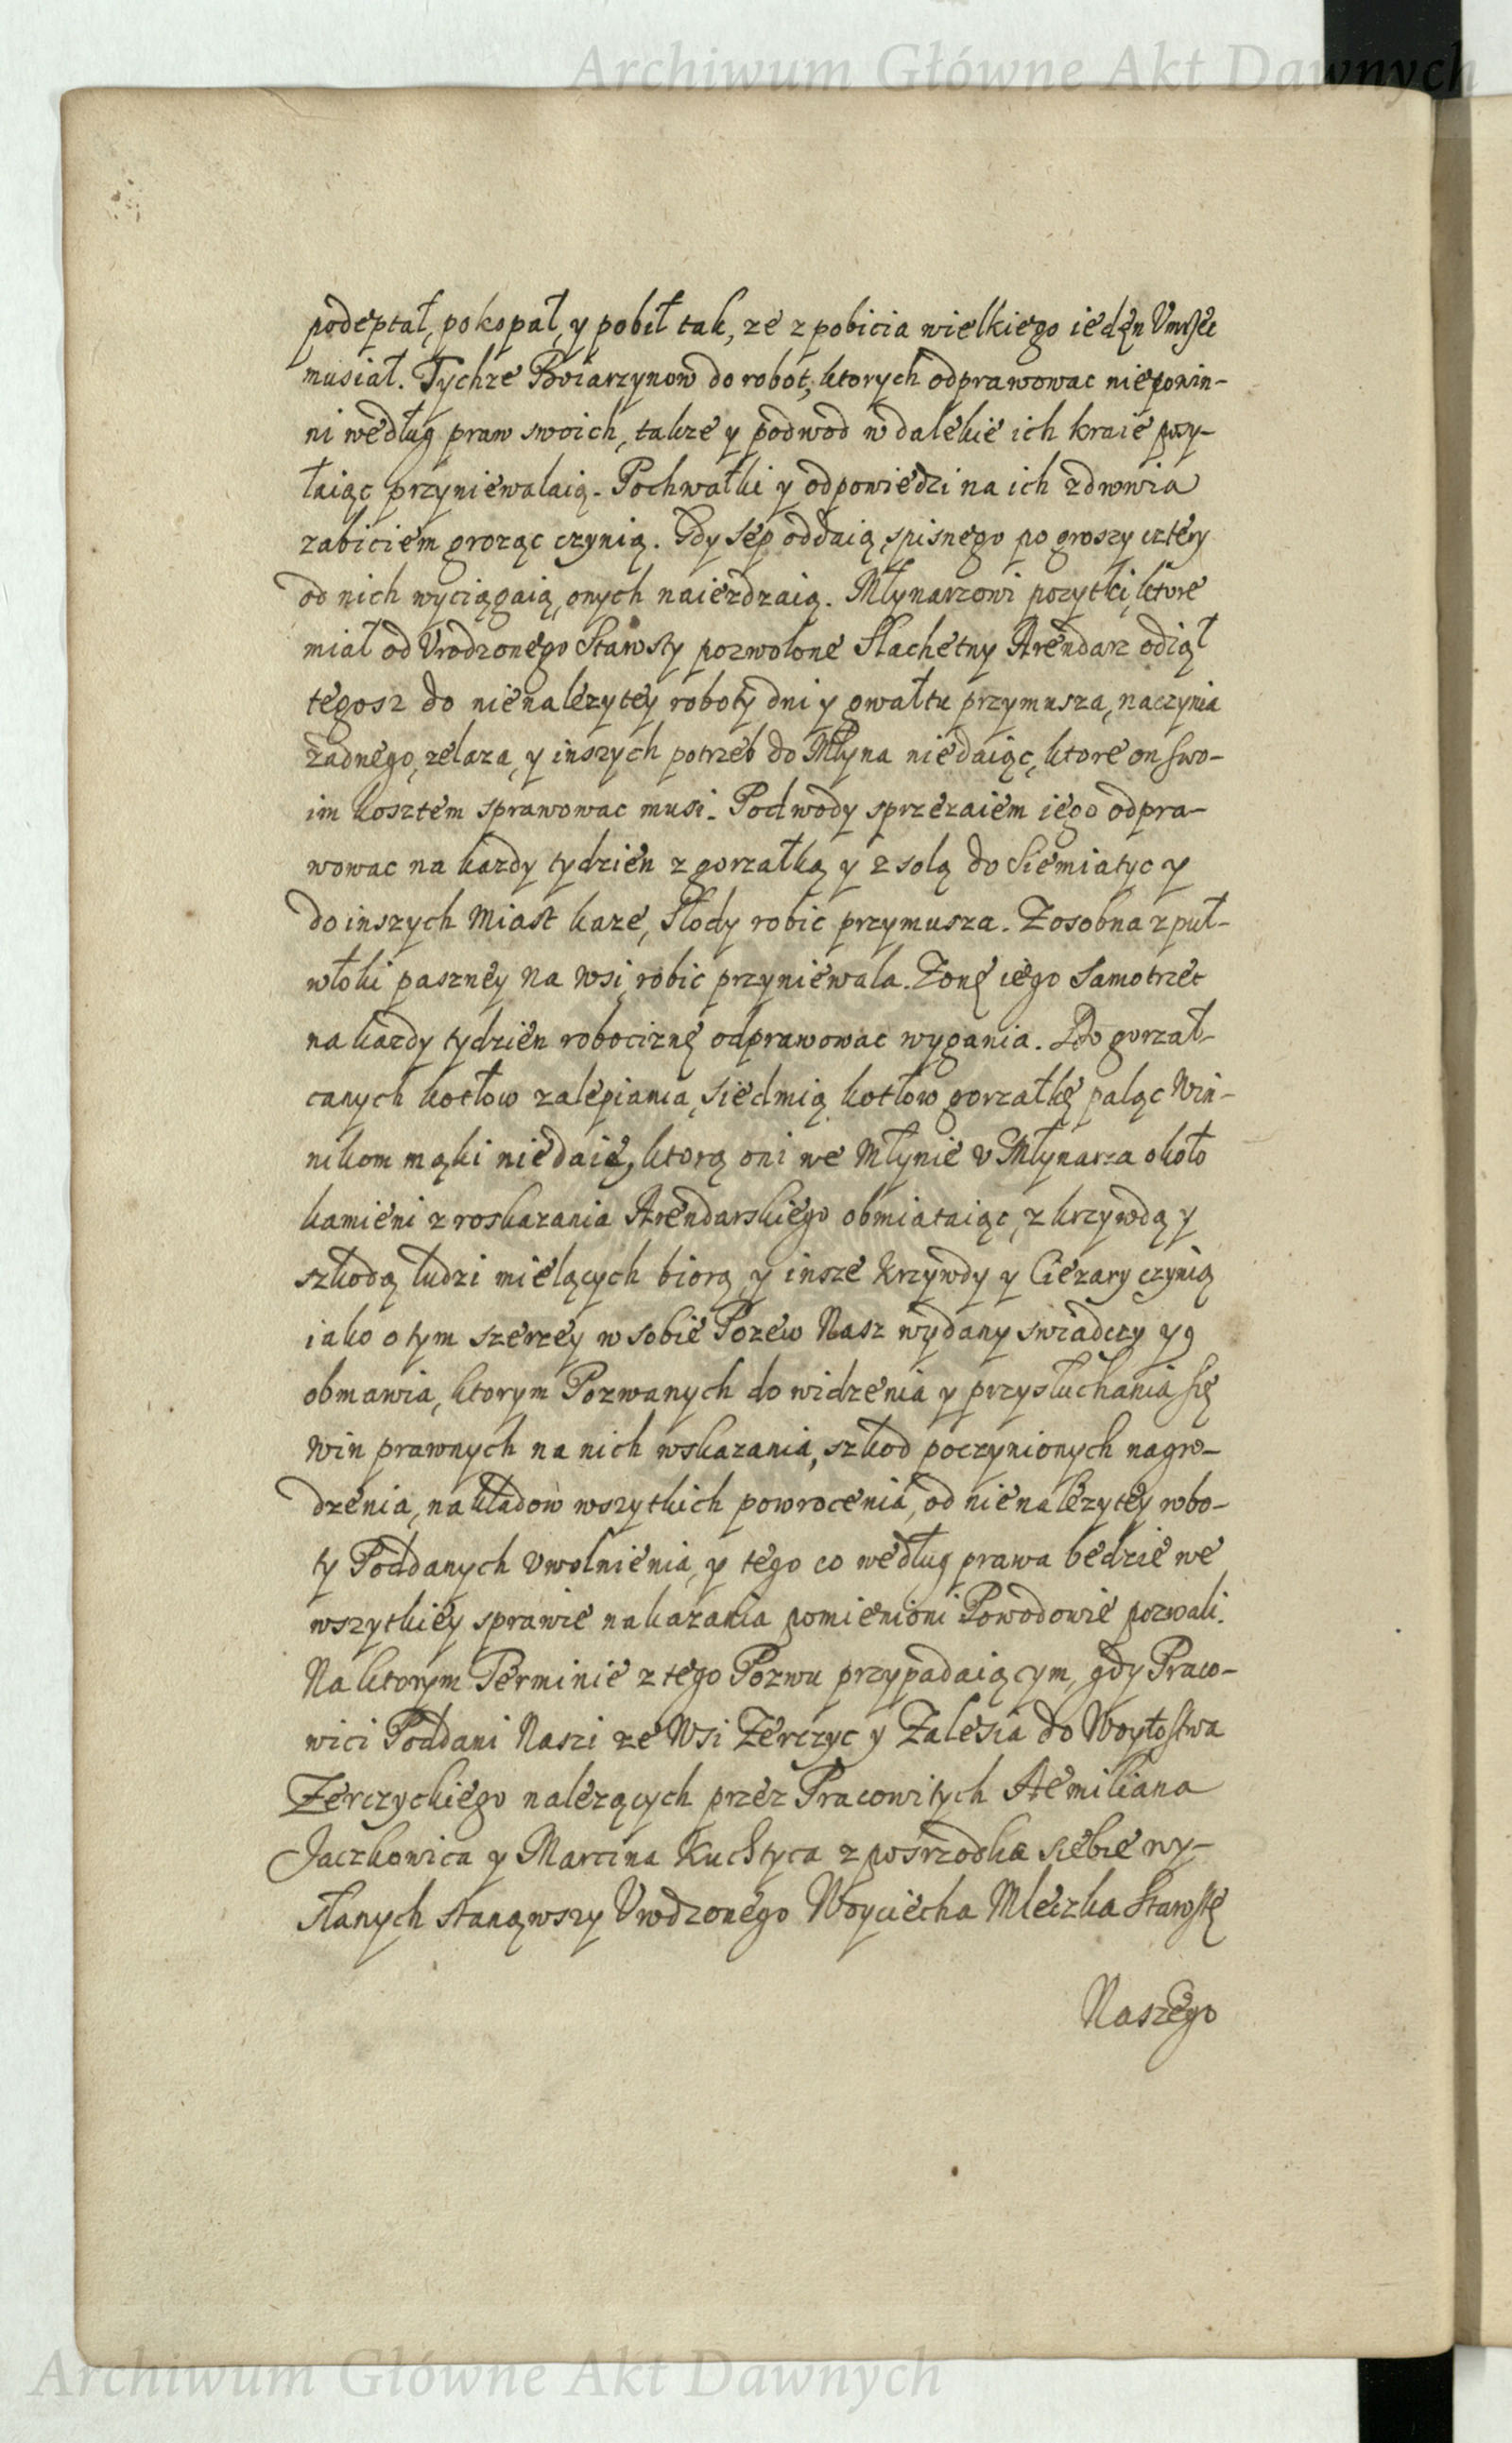 Archiwum Główne Akt Dawnych
podeptał, pokopał, y pobił tak, ze z pobicia wielkiego ieden Vmrzec
musiał. Tychze Boiarzynow do robot, ktorych odprawowac niepowin-
ni według praw swoich, takze y podwod w dalekie ich kraie posy-
łaiąc przyniewalaią. Pochwałki y odpowiedzi na ich zdrowia
zabiciem grożąc czynią. Gdy sep oddaią, spisnego po groszy cztery
od nich wyciągaią, onych naiezdzaią. Młynarzowi pozytki, ktore
miał od Vrodzonego Starosty pozwolone Slachetny Arendarz odiął
tegosz do nienalezytey roboty dni y gwałtu przymusza, naczynia
zadnego, zelaza, y inszych potrzeb do Młyna niedaiąc, ktore on swo-
im kosztem sprawowac musi. Podwody sprzezaiem iego odpra-
wowac na kazdy tydzien z gorzałką y z solą do Siemiatycz y
do inszych Miast kaze, Słody robic przymusza. Zosobna z puł-
włoki paszney na wsi robic przyniewala. Zonę iego Samotrzec
na kazdy tydzien robociznę odprawowac wygania. Do gorzał-
canych kotłow zalepiania, siedmią kotłow gorzałkę paląc Win-
nikom mąki niedaie, ktorą oni we Młynie v Młynarza około
kamieni z roskazania Arendarskiego obmiataiąc, z krzywdą y
szkodą ludzi mielących biorą, y insze krzywdy y Ciezary czynią
iako o tym szerzey w sobie Pozew Nasz wydany swiadczy y
obmawia, ktorym Pozwanych do widzenia y przysłuchania się
win prawnych na nich wskazania, szkod poczynionych nagro-
dzenia, nakładow wszytkich powrocenia, od nienalezytey robo-
ty Poddanych vwolnienia, y tego co według prawa będzie we
wszytkiey sprawie nakazania pomienioni Powodowie pozwali.
Na ktorym Terminie z tego Pozwu przypadaiącym, gdy Praco-
wici Poddani Naszi ze Wsi Zerczyc y Zalesia do Woytostwa
Zerczyckiego nalezących przez Pracowitych Aemiliana
Jaczkowica y Marcina Kuchtyca z posrzodka siebie wy-
słanych stanąwszy Vrodzonego Woyciecha Mleczka Starostę
Naszego
Archiwum Główne Akt Dawnych